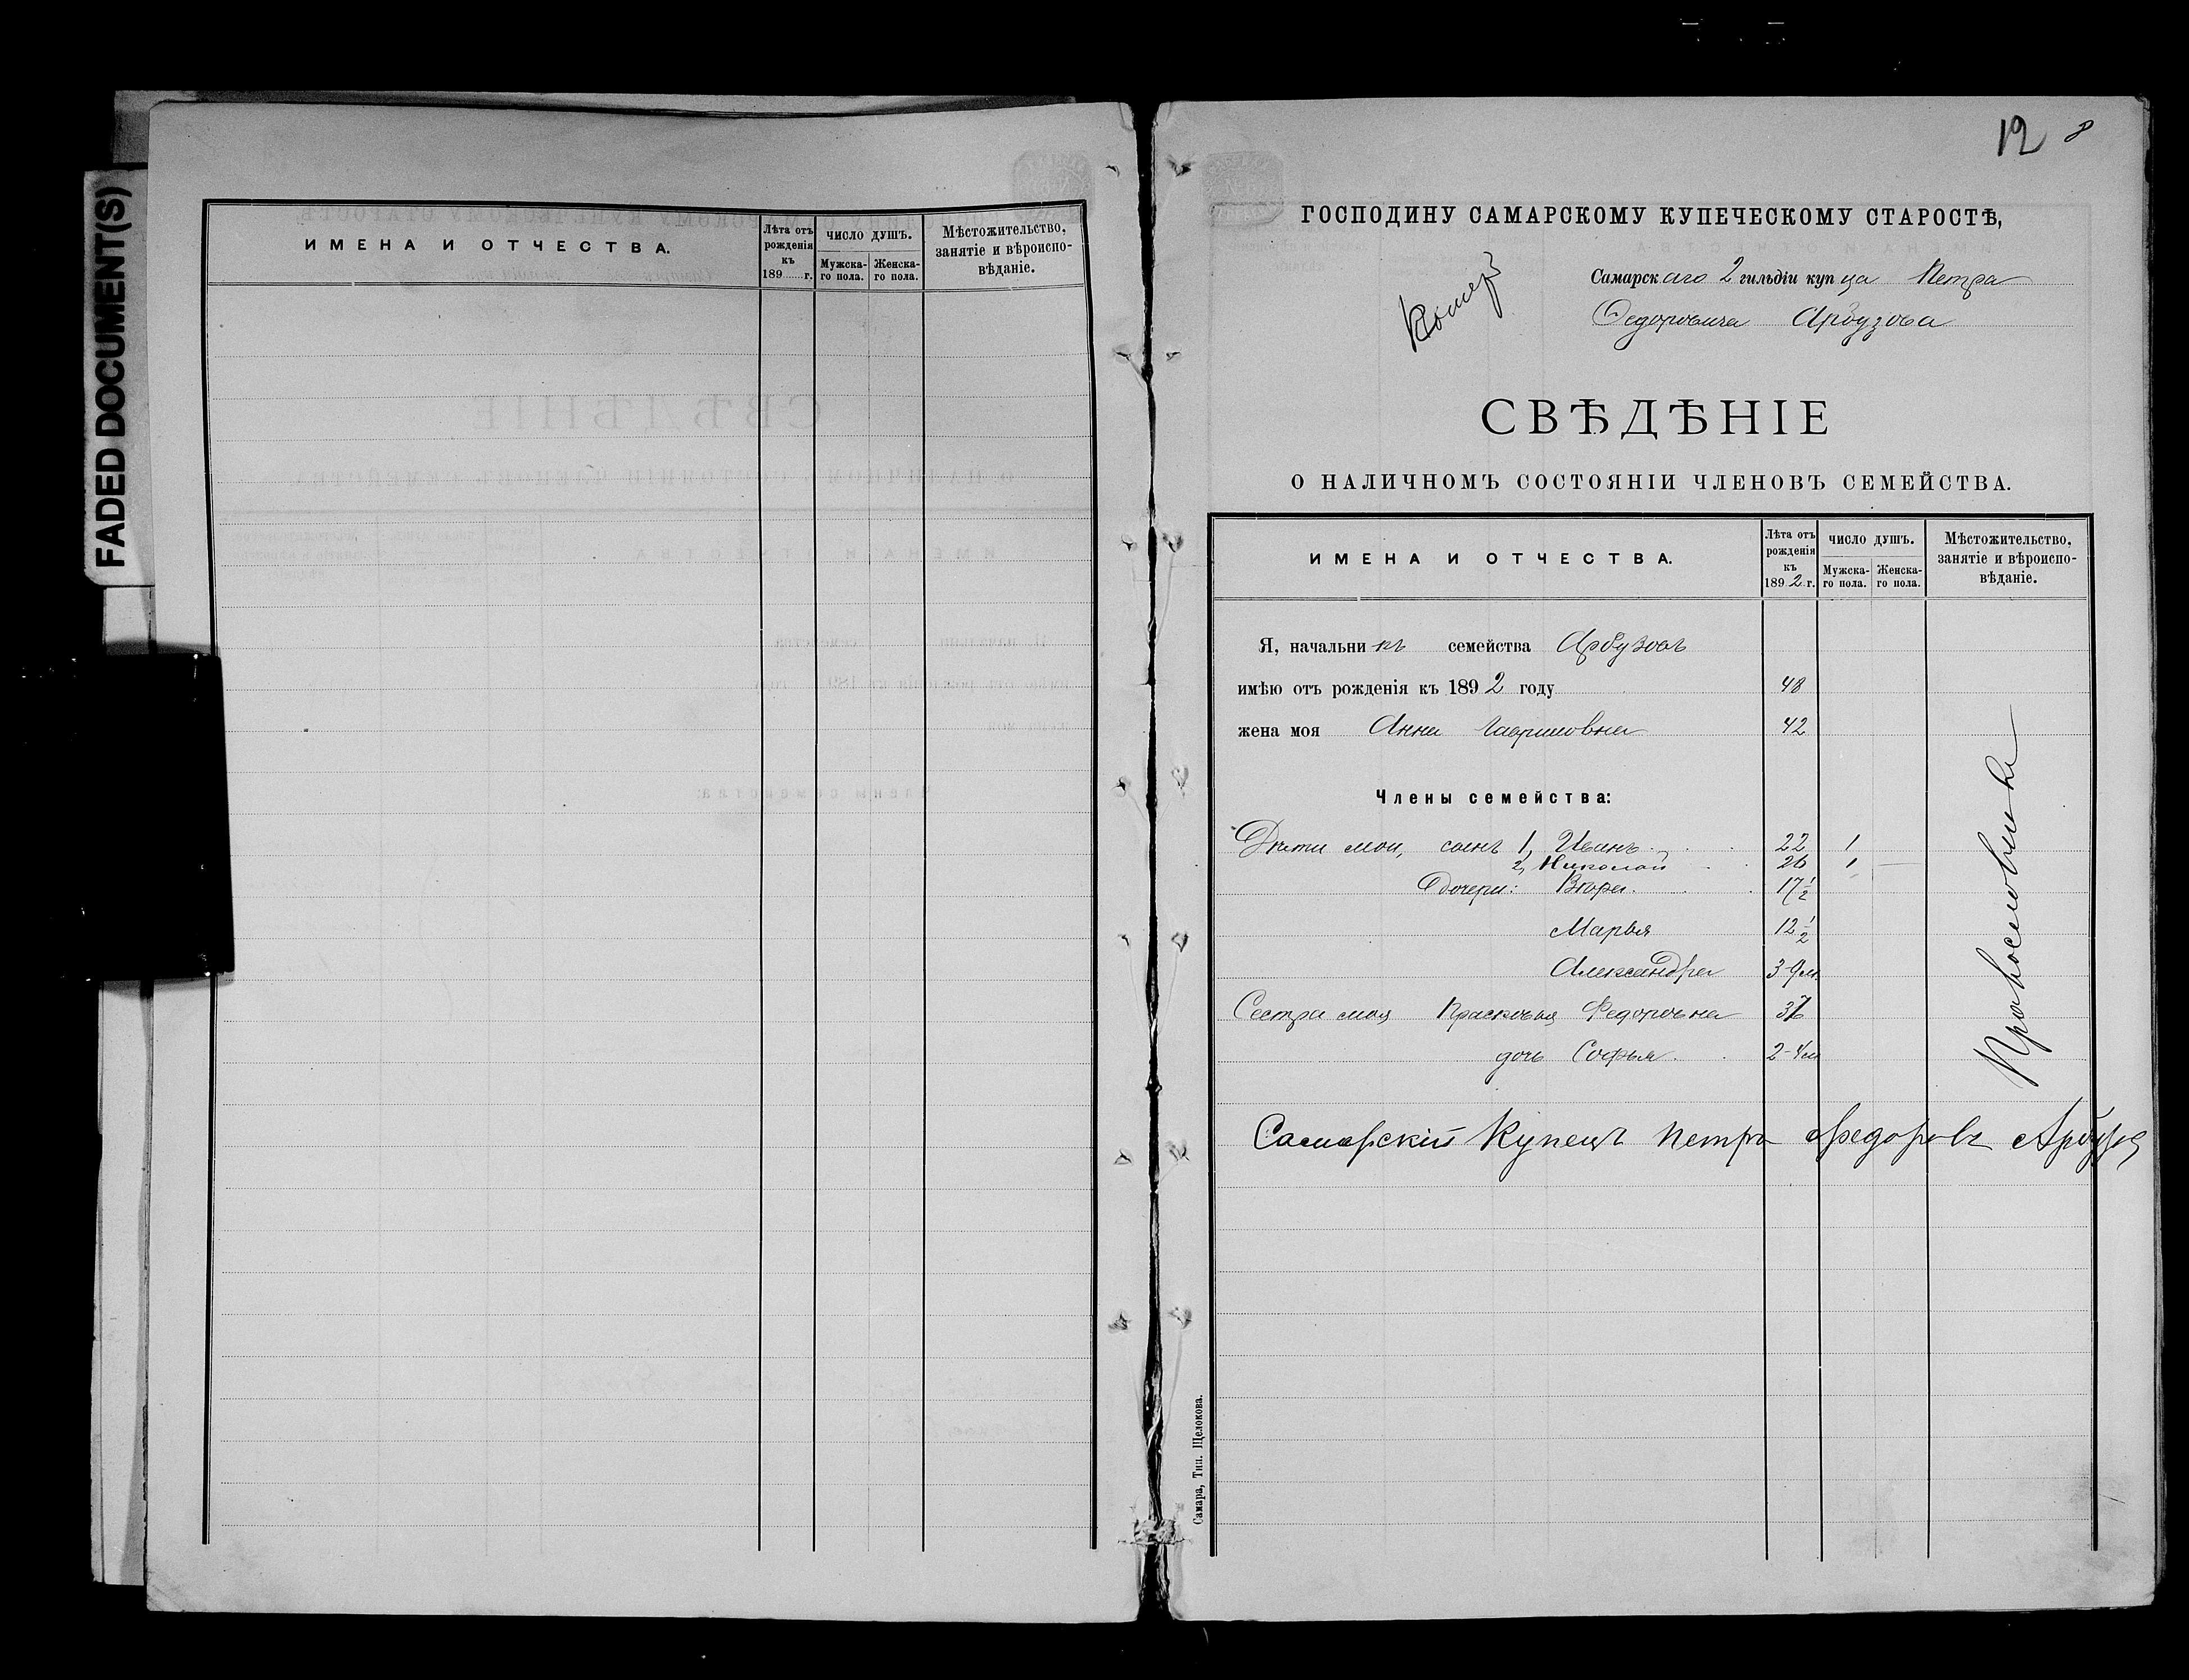 FADED DOCUMENT(S)
ИМЕНА И ОТЧЕСТВА.
Лѣта отъ рожденія къ 189 г.
ЧИСЛО ДУШЪ.
Мужска-го пола.
Женска-го пола.
Мѣстожительство, занятіе и вѣроиспо-вѣданіе.
12 8
ГОСПОДИНУ САМАРСКОМУ КУПЕЧЕСКОМУ СТАРОСТѢ,
Самарскаго 2 гильдіи купца Петра
Федоровича Арбузова
СВѢДѢНІЕ
О НАЛИЧНОМЪ СОСТОЯНІИ ЧЛЕНОВЪ СЕМЕЙСТВА.
ИМЕНА И ОТЧЕСТВА.
Лѣта отъ рожденія къ 1892 г.
ЧИСЛО ДУШЪ.
Мужска-го пола.
Женска-го пола.
Мѣстожительство, занятіе и вѣроиспо-вѣданіе.
Я, начальникъ семейства Арбузовъ
имѣю отъ рожденія къ 1892 году 48
жена моя Анна Гавриловна 42
Члены семейства:
Дѣти мои, сынъ 1, Иванъ 22 1
2, Николай 26 1 —
Дочери: Вѣра 17 1/2
Марья 12 1/2
Александра 3-9 м.
Сестра моя Прасковья Федоровна 37
дочь Софья 2-4 м
Православные
Самарскій Купецъ Петръ Федоровъ Арбузов
Самара, Тип. Щелокова.